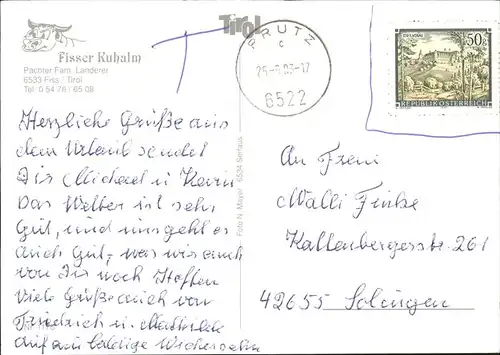 Tirol
Fisser Kuhalm
Pächter Fam. Landerer
6533 Fiss / Tirol
Tel. 0 54 76 / 65 08
PRUTZ
c
6522
50g
REPUBLIK ÖSTERREICH
Herzliche Grüße aus
dem Urlaub sendet
Dir Michael u Karin
Das Wetter ist sehr
Gut, und uns geht es
auch Gut, was wir auch
von Dir noch Hoffen
Viele Grüße auch von
Friedrich u.
auf ein baldige Wiedersehn
Foto N. Mayer 6534 Serfaus
An Frau
Walli Finke
Kattenbergerstr. 261
42655 Solingen